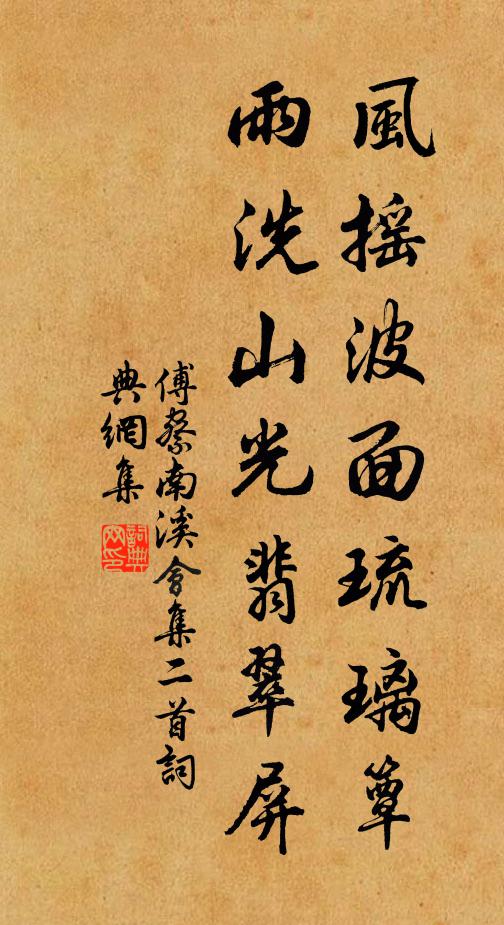 風摇波面琉璃簟
雨洗山光翡翠屏
傅察南溪會集二首詞
典網集
詞典
网印